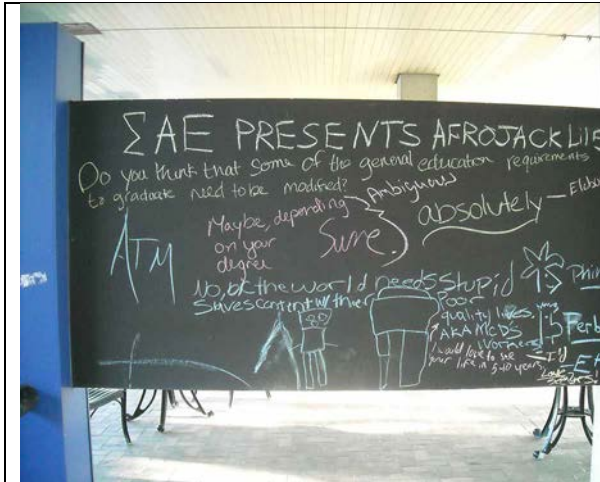 ΣAE PRESENTS AFROJACK
Do you think that some of the general education requirements
to graduate need to be modified?
Ambiguous
Maybe, depending
on your
degree
Sure
absolutely
ATM
No, bc the world needs stupid
slaves content w/ thier
Poor
quality lives,
AKA MCD's
workers!
I would love to see
your life in 5-10 years
I'd
Love